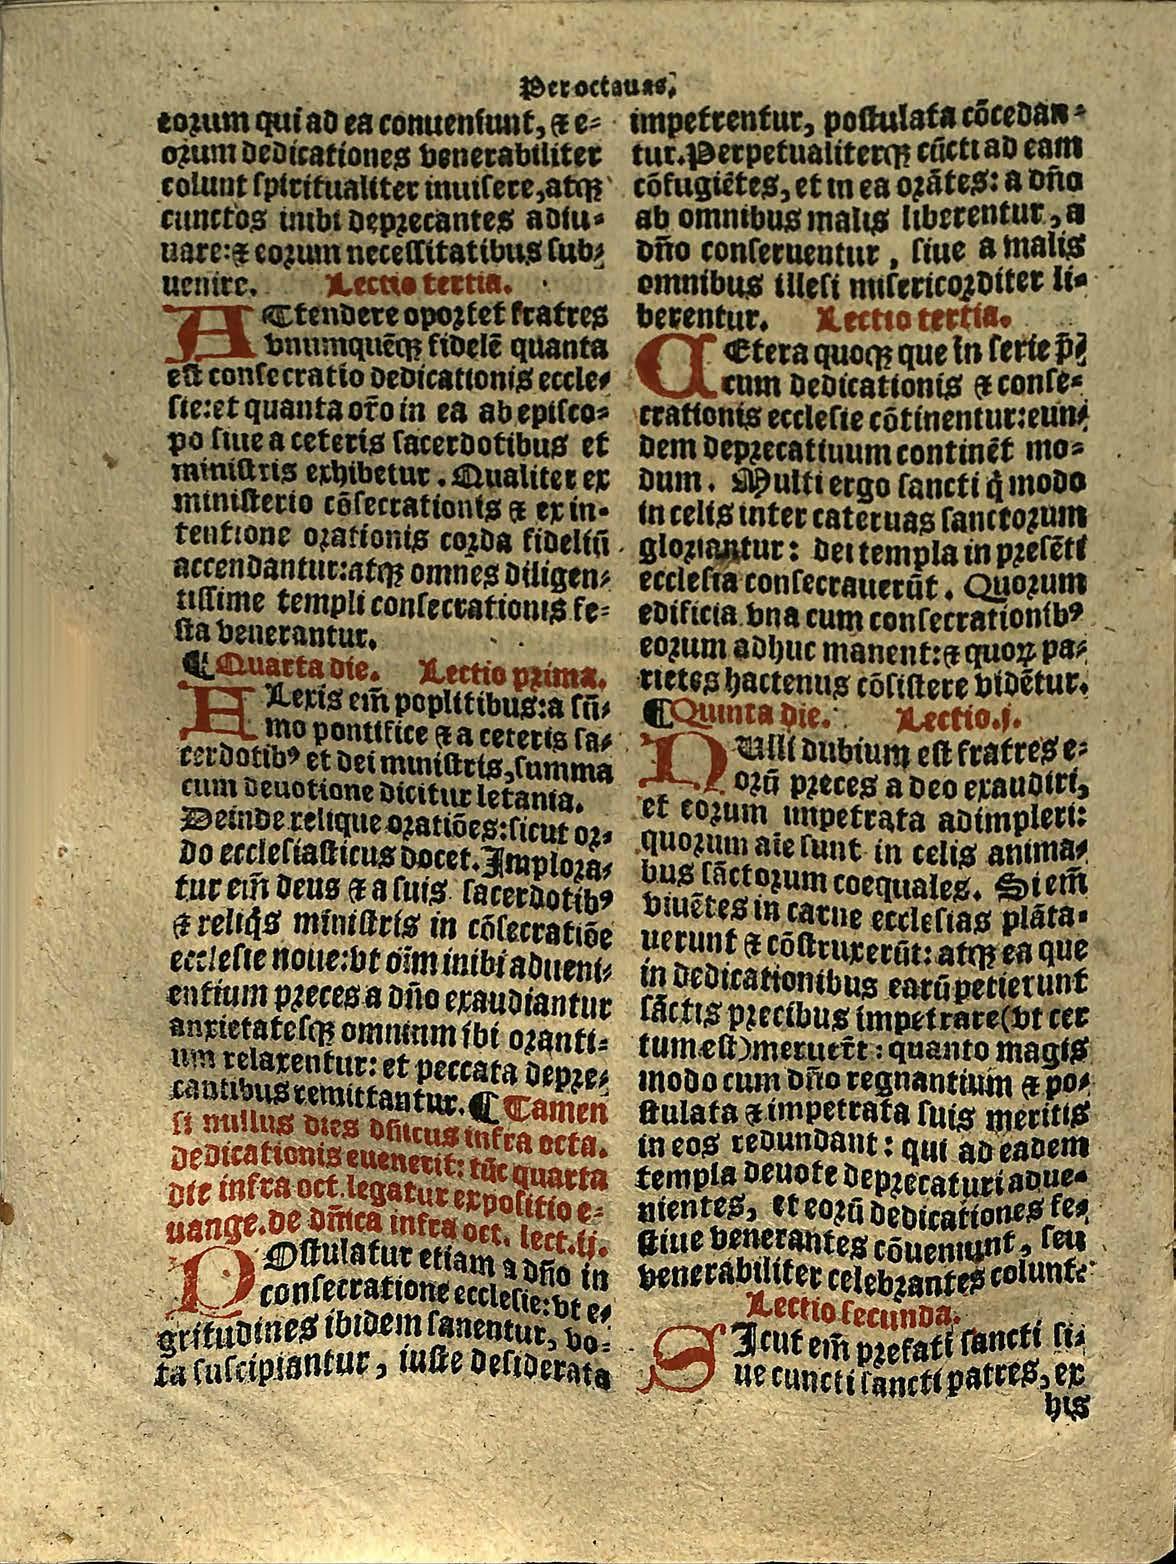 Per octauas.
eorum qui ad ea conueniunt, ⁊ e-
orum dedicationes venerabiliter
colunt spiritualiter inuisere, atqꝫ
cunctos inibi deprecantes adiu-
uare: ⁊ eorum necessitatibus sub-
uenire. Lectio tertia.
ATtendere oportet fratres
vnumquēqꝫ fidelē quanta
est consecratio dedicationis eccle-
sie: et quanta or̄o in ea ab episco-
po siue a ceteris sacerdotibus et
ministris exhibetur. Qualiter ex
ministerio cōsecrationis ⁊ ex in-
tentione orationis corda fideliū
accendantur: atqꝫ omnes diligen-
tissime templi consecrationis fe-
sta venerantur.
¶ Quarta die. Lectio prima.
FLexis em̄ poplitibus: a sū-
mo pontifice ⁊ a ceteris sa-
cerdotibꝰ et dei ministris, summa
cum deuotione dicitur letania.
Deinde relique oratiōes: sicut or-
do ecclesiasticus docet. Implora-
tur em̄ deus ⁊ a suis sacerdotibꝰ
⁊ reliq̄s ministris in cōsecratiōe
ecclesie noue: vt oīm inibi adueni-
entium preces a dn̄o exaudiantur
anxietatesqꝫ omnium ibi oranti-
um relaxentur: et peccata depre-
cantibus remittantur. ¶ Tamen
si nullus dies dn̄icus infra octa.
dedicationis euenerit: tūc quarta
die infra oct. legatur expositio e-
uange. de dn̄ica infra oct. lect. ij.
POstulatur etiam a dn̄o in
consecratione ecclesie: vt e-
gritudines ibidem sanentur, vo-
ta suscipiantur, iuste desiderata
impetrentur, postulata cōcedan-
tur. Perpetualiterqꝫ cūcti ad eam
cōfugiētes, et in ea orātes: a dn̄o
ab omnibus malis liberentur, a
dn̄o conseruentur, siue a malis
omnibus illesi misericorditer li-
berentur. Lectio tertia.
CEtera quoqꝫ que in serie p̄di
cum dedicationis ⁊ conse-
crationis ecclesie cōtinentur: eun-
dem deprecatiuum continēt mo-
dum. Multi ergo sancti q̄ modo
in celis inter cateruas sanctorum
gloriantur: dei templa in presēti
ecclesia consecrauerūt. Quorum
edificia vna cum consecrationibꝰ
eorum adhuc manent: ⁊ quoꝝ pa-
rietes hactenus cōsistere vidētur.
¶ Quinta die. Lectio .j.
NUlli dubium est fratres e-
orū preces a deo exaudiri,
et eorum impetrata adimpleri:
quorum aīe sunt in celis anima-
bus sāctorum coequales. Si em̄
viuētes in carne ecclesias plāta-
uerunt ⁊ cōstruxerūt: atqꝫ ea que
in dedicationibus earū petierunt
sāctis precibus impetrare (vt cer
tum est) meruerūt: quanto magis
modo cum dn̄o regnantium ⁊ po-
stulata ⁊ impetrata suis meritis
in eos redundant: qui ad eadem
templa deuote deprecaturi adue-
nientes, et eorū dedicationes fe-
stiue venerantes cōueniunt, seu
venerabiliter celebrantes colunt:
Lectio secunda.
SIcut em̄ prefati sancti si-
ue cuncti sancti patres, ex
his